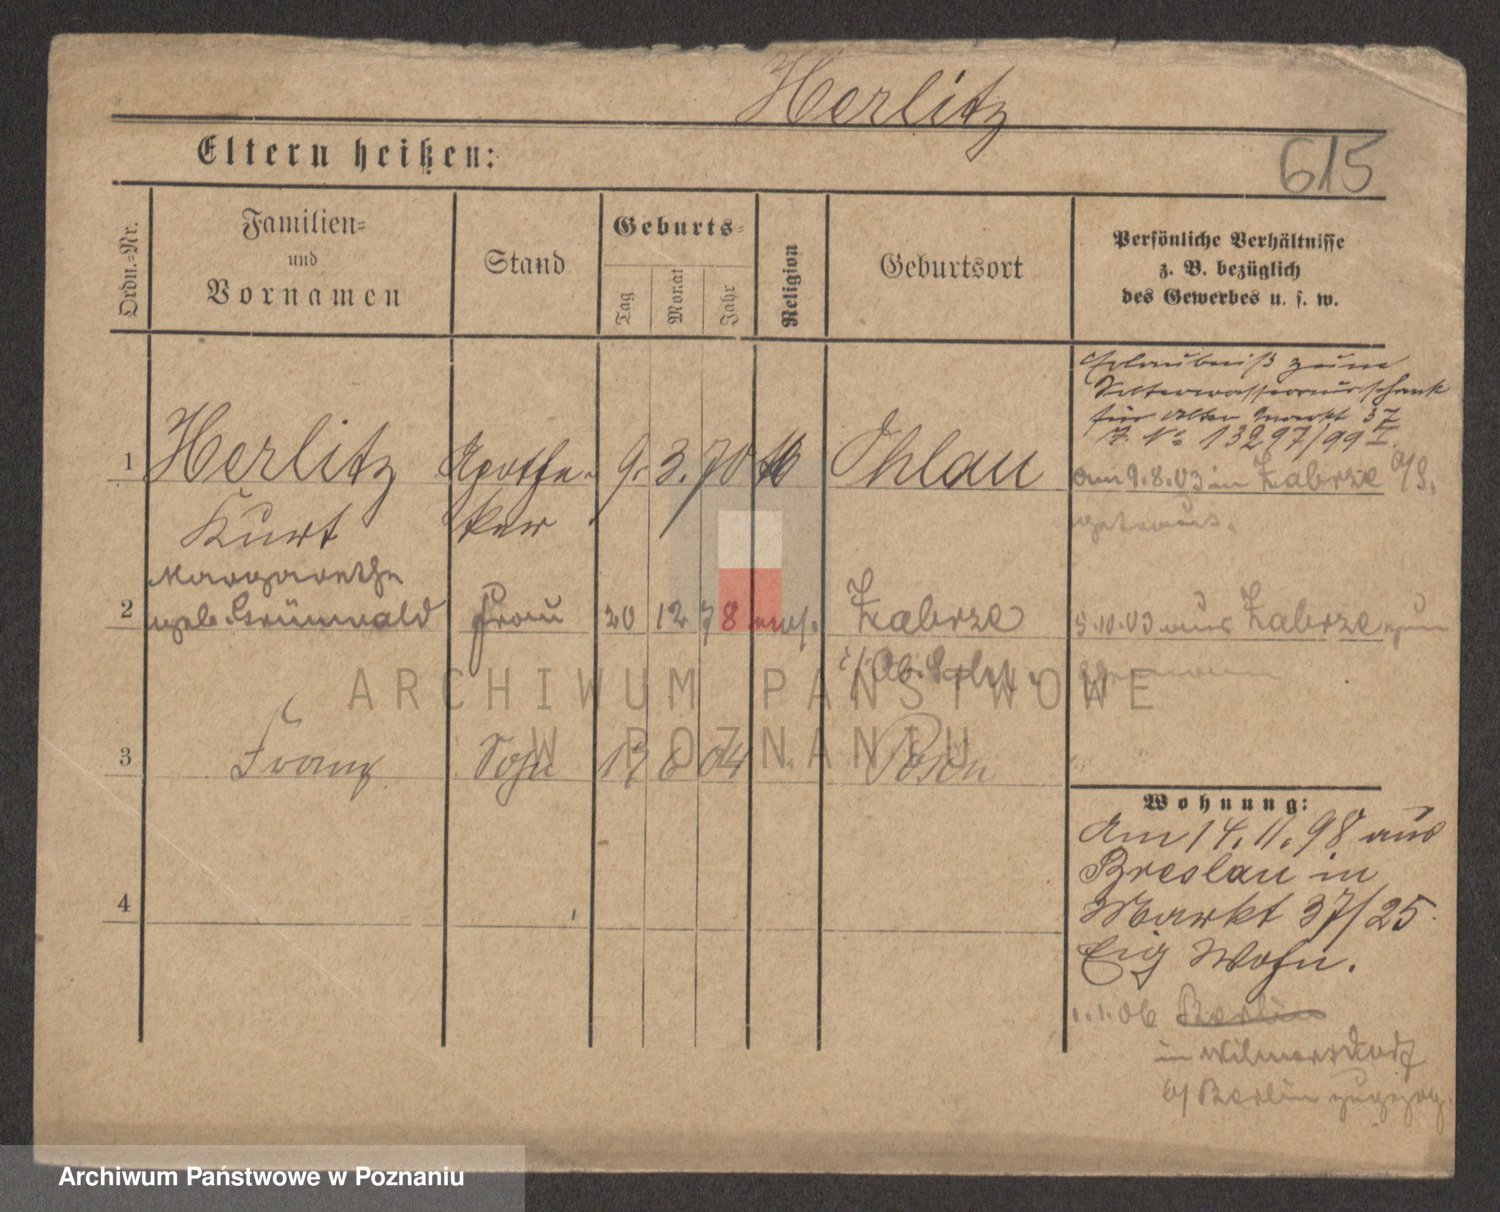 Herlitz
Eltern heißen:
615
Ordn.-Nr.
Familien-
und
Vornamen
Stand
Geburts-
Tag
Monat
Jahr
Religion
Geburtsort
Persönliche Verhältnisse
z. B. bezüglich
des Gewerbes u. s. w.
Erlaubniß zum
Selterwasserausschank
für Alten Markt 37
N° 13297/99 I.
1 Herlitz Apothe- 9. 3. 70 Ohlau
am 9.8.03 in Zabrze O/S.
getraut.
Kurt ker
Margarethe
2 geb. Grünwald Frau 20 12 78 mos. Zabrze
5.10.03 aus Zabrze zum
3 Franz Sohn 13 6 04 Posen
Wohnung:
Am 14.11.98 aus
Breslau in
Markt 37/25.
Eig Wohn.
4
1.1.06 Berlin
in Wilmersdorf
b/ Berlin zugezog.
ARCHIWUM PAŃSTWOWE
W POZNANIU
Archiwum Państwowe w Poznaniu